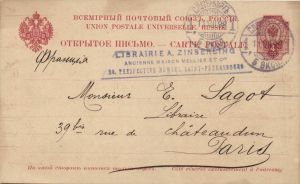 ВСЕМІРНЫЙ ПОЧТОВЫЙ СОЮЗЪ. РОССІЯ.
UNION POSTALE UNIVERSELLE. RUSSIE.
ОТКРЫТОЕ ПИСЬМО. — CARTE POSTALE.
LIBRAIRIE A. ZINSERLING
ANCIENNE MAISON MELLIER ET Co
20, PERSPECTIVE NEWSKY, SAINT-PETERSBOURG
Франція
Monsieur E. Sagot
Libraire
39bis rue de Châteaudun
Paris
На этой сторонѣ